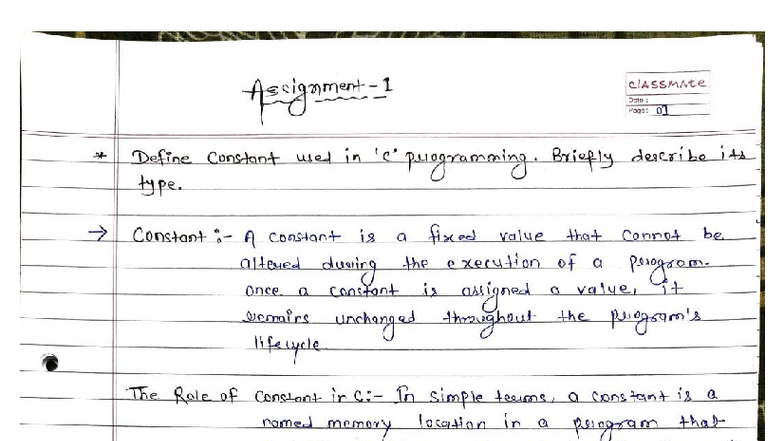 Assignment-1
CLASSMATE
Date :
Page: 01
* Define Constant used in 'C' programming. Briefly describe its
type.
→ Constant :- A constant is a fixed value that cannot be
altered during the execution of a program.
once a constant is assigned a value, it
remains unchanged throughout the program's
lifecycle
The Role of Constant in C:- In simple terms, a constant is a
named memory location in a program that